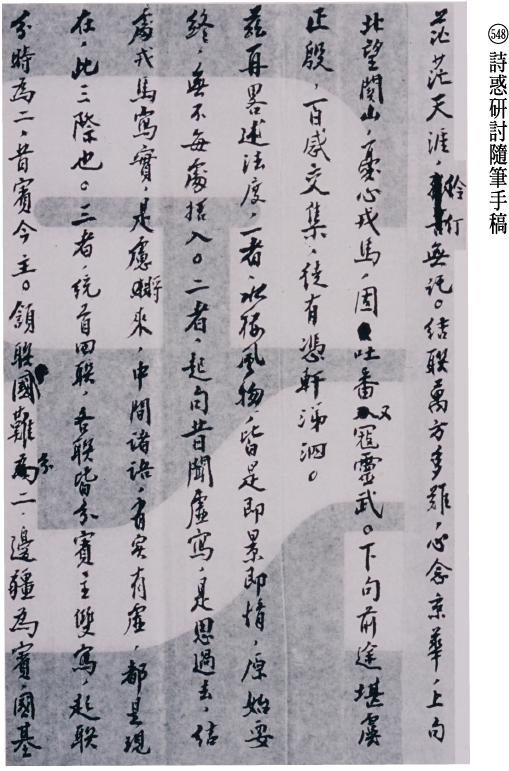 548 詩惑研討隨筆手稿
茫茫天涯，伶仃無託。結聯萬方多難，心念京華，上句
北望關山，憂心戎馬，因吐番又寇靈武。下句前途堪虞
止殷，百感交集，徒有憑軒涕泗。
茲再畧述法度，一者，水程風物，皆是即景即情，原始要
終，無不每處插入。二者，起句昔聞虛寫，是思過去，結
處戎馬寫實，是慮將來，中間諸語，有實有虛，都是現
在，此三際也。三者，統首四聯，各聯皆分賓主雙寫，起聯
分時為二，昔賓今主。頷聯國難分為二，邊疆為賓，國基